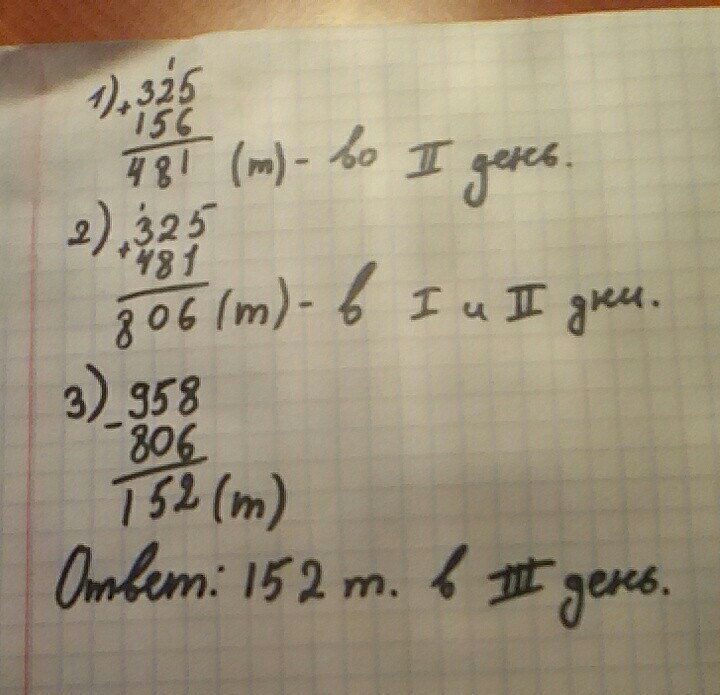 1) + 325
156
481 (т) - во II день.
2) + 325
481
806 (т) - в I и II дни.
3) - 958
806
152 (т)
Ответ: 152 т. в III день.